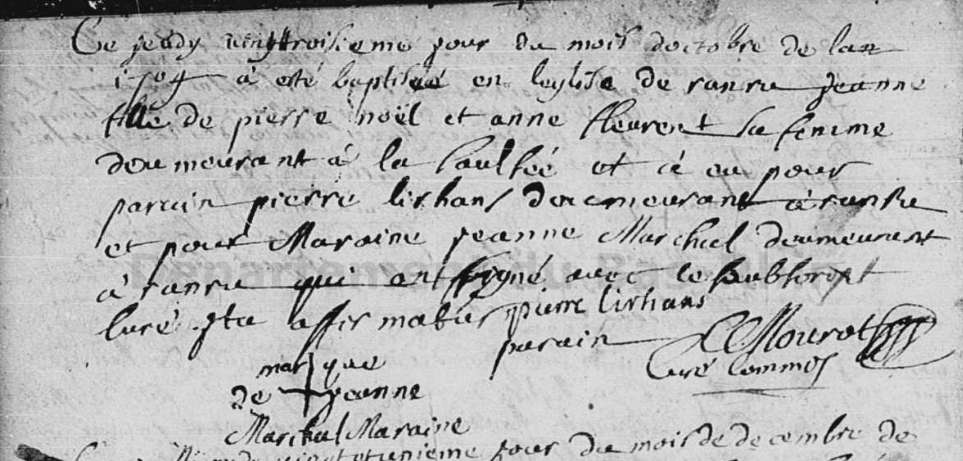 Ce jeudy vingttroisieme jour du mois doctobre de lan
1704 à esté baptisée en leglise de ranru jeanne
fille de pierre noël et anne fleurent sa femme
doumeurant à la saulsée et à eu pour
parain pierre lirhans doumeurant à ranru
et pour Maraine jeanne Marchal doumeurant
à ranru qui ont signé avec le soubscript
Curé. Ita affirmatur pierre lirhans
parain C Mourot
Curé Commis
marque
de jeanne
Marchal Maraine
vingtetunieme jour du mois de decembre de